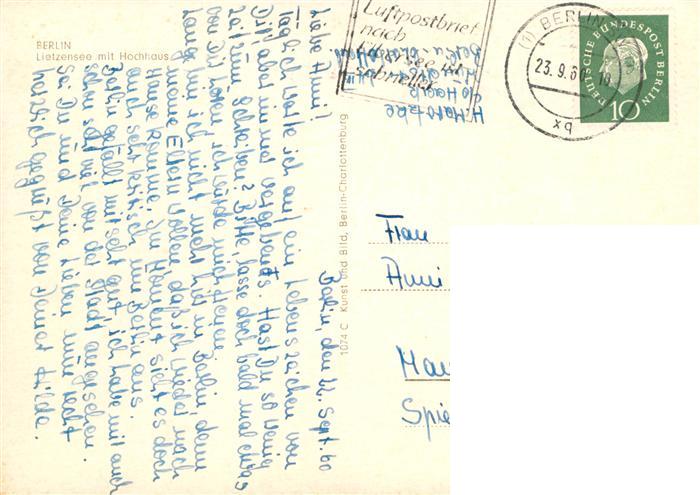 BERLIN
Lietzensee mit Hochhaus
Luftpostbrief
nach
Übersee
(1) BERLIN
23.9.60
xq
DEUTSCHE BUNDESPOST BERLIN
10
Berlin, den 22. Sept. 60
Liebe Anni!
Täglich warte ich auf ein Lebenszeichen von
Dir, aber immer vergebens. Hast Du so wenig
Zeit zum Schreiben? Bitte, lasse doch bald mal etwas
von Dir hören, ich würde mich freuen.
Lange bin ich nicht mehr hier in Berlin, denn
meine Eltern wollen, daß ich wieder nach
Hause komme. Im Moment sieht es doch
auch sehr kritisch um Berlin aus.
Berlin gefällt mir sehr gut, ich habe mir auch
schon sehr viel von der Stadt angesehen.
Sei Du und Deine Lieben nun recht
herzlich gegrüßt von Deiner Hilde.
1074 C Kunst und Bild, Berlin-Charlottenburg
Frau
Anni
Spie